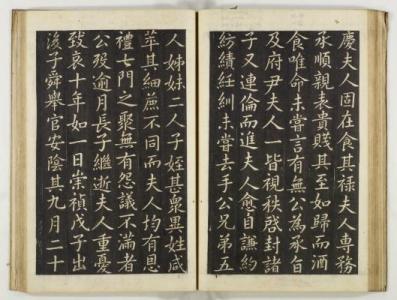 慶夫人固在食其祿夫人專務
承順親表貴賤其至如歸而酒
食唯命未嘗言有無公為丞自
及府尹夫人一皆視秩啓封諸
子又連倫而進夫人愈自謙約
紡績絍紃未嘗去手公兄弟五
人姊妹二人子姪甚衆異姓咸
萃其細蔗不同而夫人均有恩
禮七門之聚無有怨議不滿者
公歿逾月長子繼逝夫人重憂
致哀十年如一日崇禎戊子出
後子舜舉官安陰其九月二十